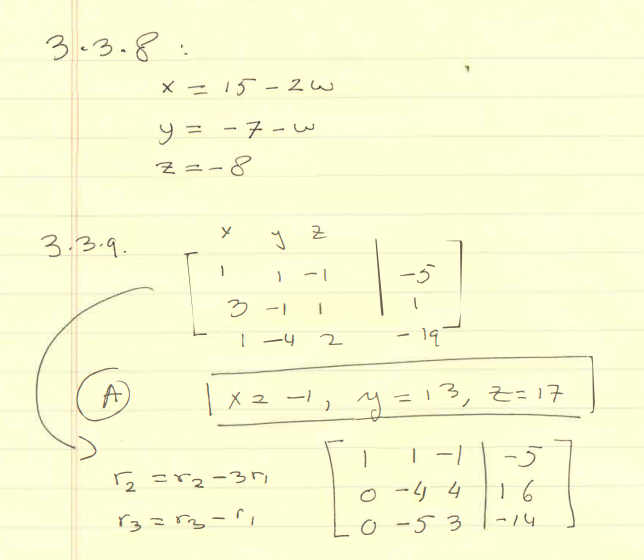 3.3.8 :
x = 15 - 2w
y = -7 - w
z = -8
3.3.9.
x y z
1 1 -1 | -5
3 -1 1 | 1
1 -4 2 -19
A
x = -1, y = 13, z = 17
r2 = r2 - 3r1
r3 = r3 - r1
1 1 -1 | -5
0 -4 4 | 16
0 -5 3 | -14